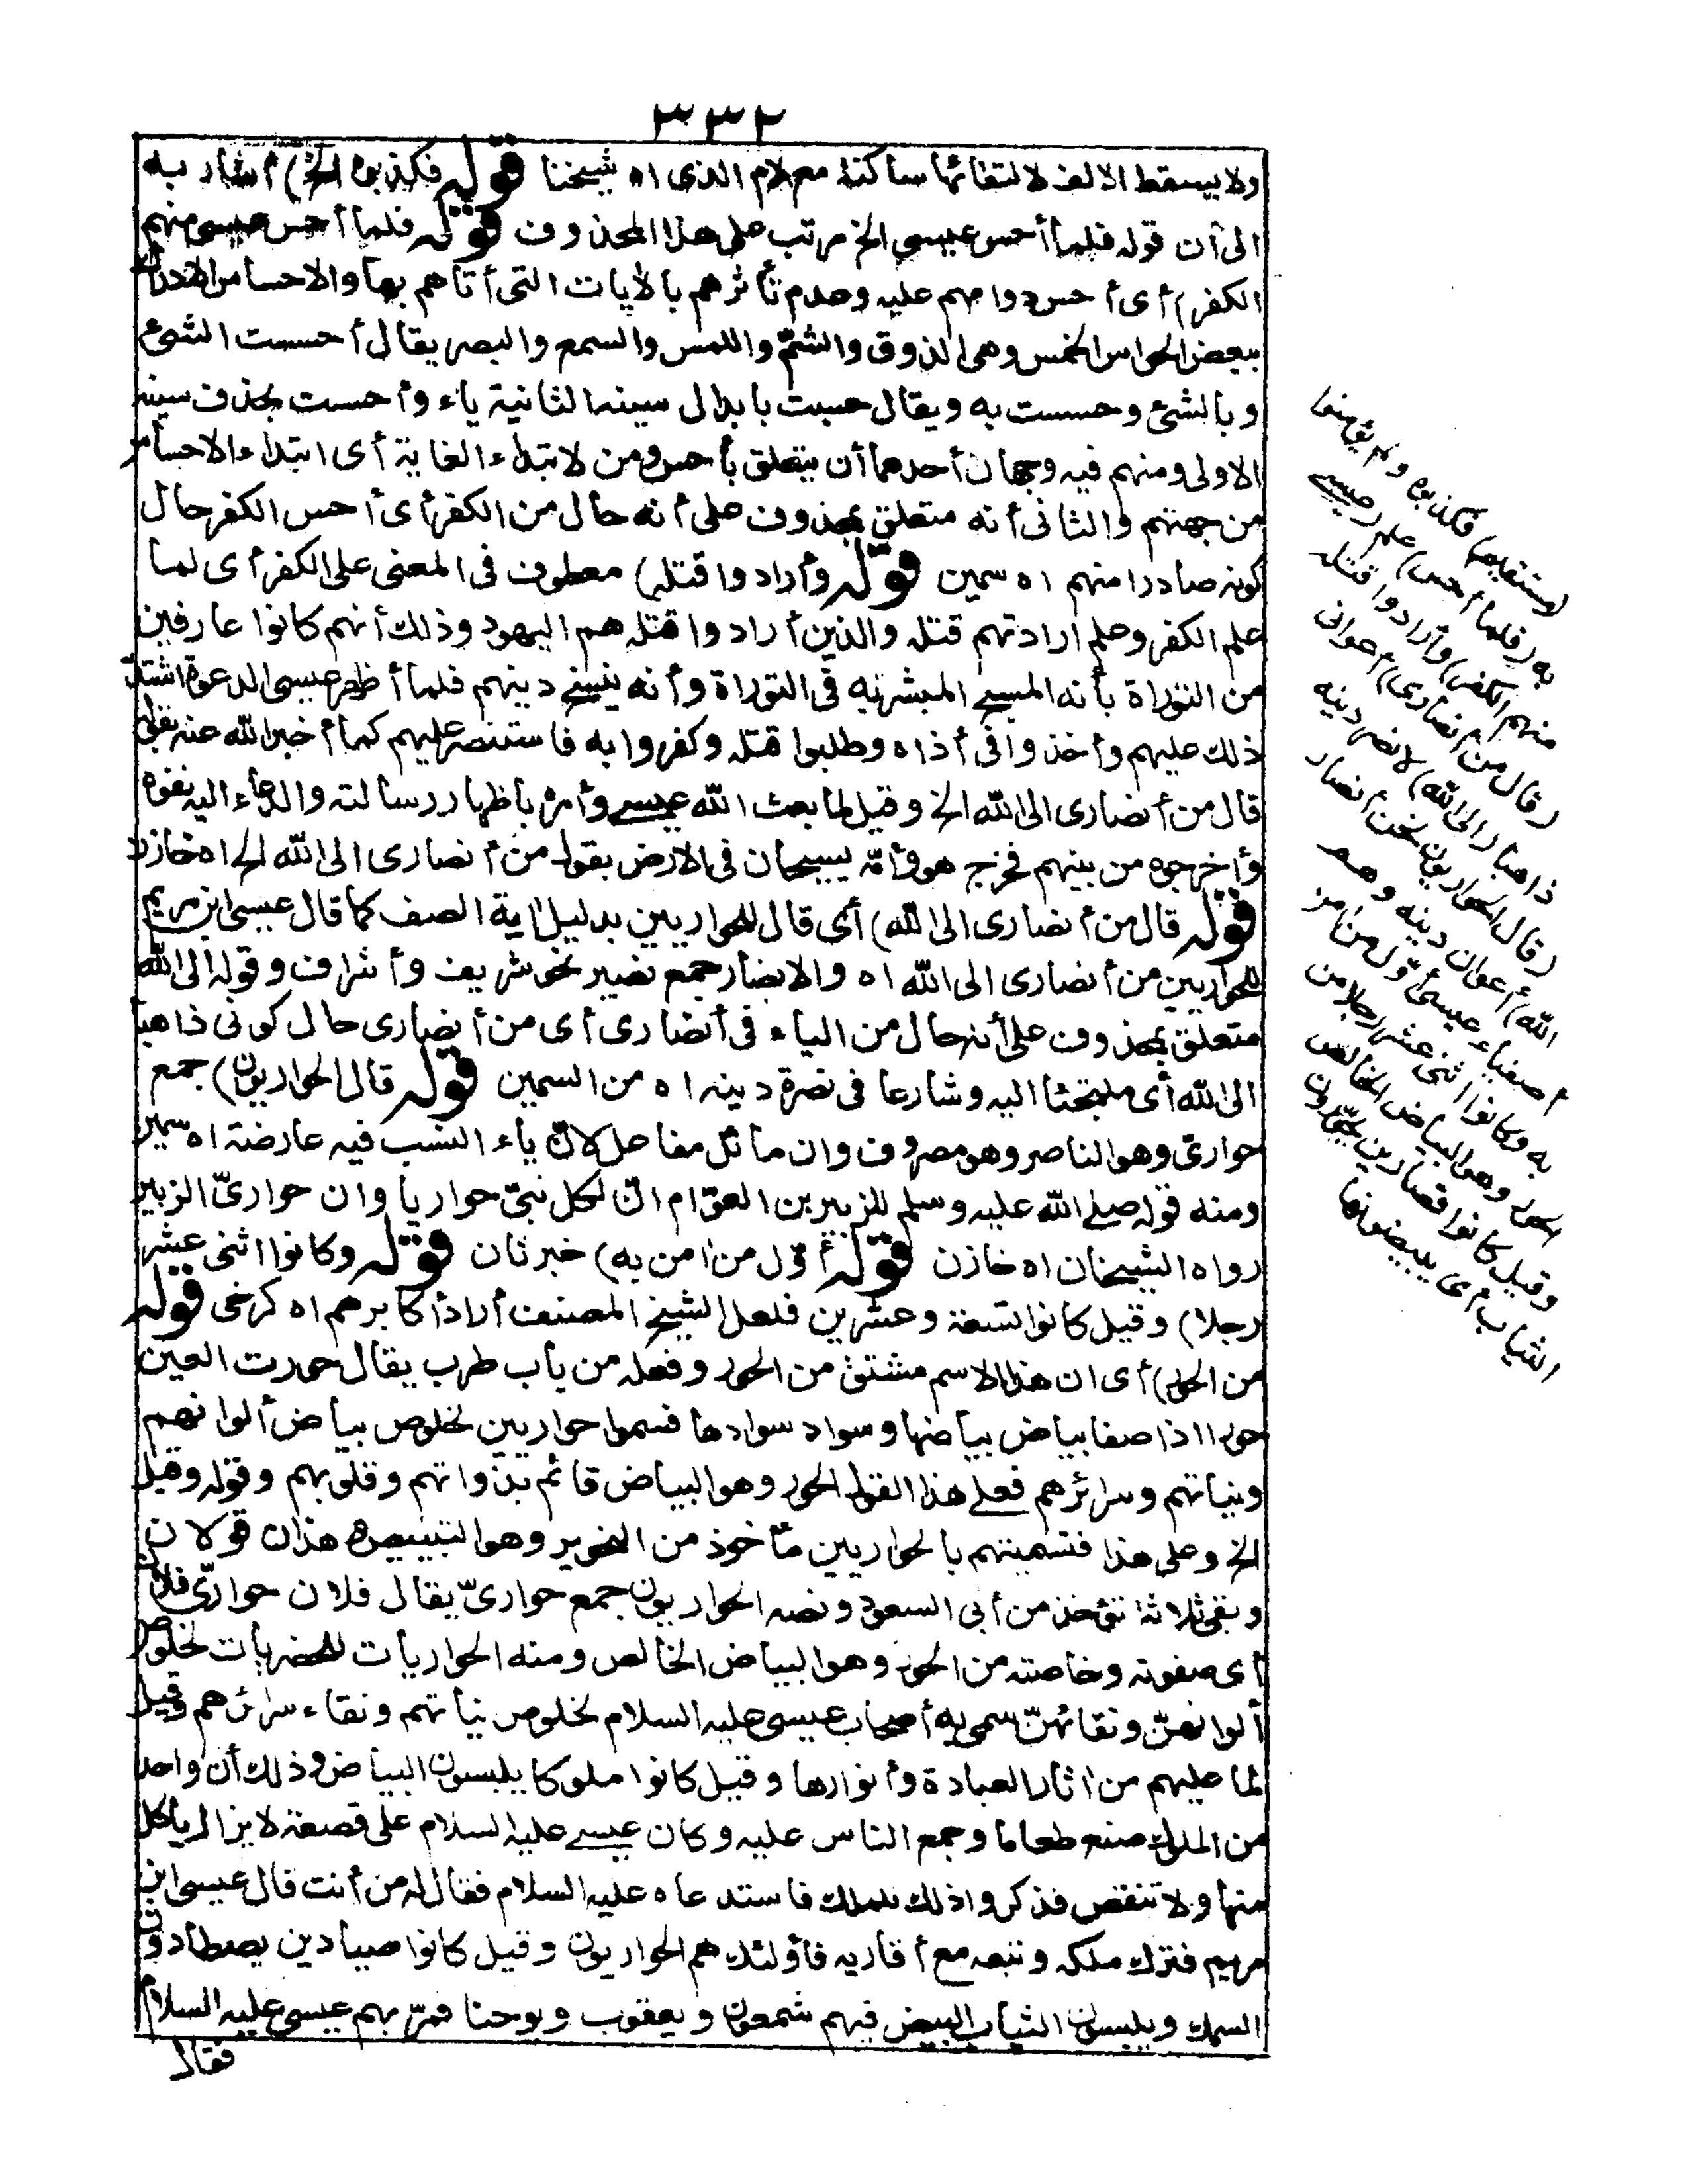 ٣٣٢
ولا يسقط الالف لالتقائها ساكنة مع لام الذى اه شيخنا قوله فكذبوه الخ) أشار به
الى أن قوله فلما أحس عيسى الخ مرتب على هذا المحذوف قوله فلما أحس عيسى منهم
الكفر) أى أحس دوامهم عليه وعدم تأثرهم بالآيات التى أتاهم بها والاحساس الادراك
ببعض الحواس الخمس وهى الذوق والشمّ واللمس والسمع والبصر يقال أحسست الشئ
وبالشئ وحسست به ويقال حسيت بابدال سينه الثانية ياء وأحست بحذف سينه
الاولى ومنهم فيه وجهان أحدهما أن يتعلق بأحس ومن لابتداء الغاية أى ابتداء الاحساس
من جهتهم والثانى أنه متعلق بمحذوف على أنه حال من الكفر أى أحس الكفر حال
كونه صادرا منهم اه سمين قوله وأرادوا قتله) معطوف فى المعنى على الكفر أى لما
علم الكفر وعلم ارادتهم قتله والذين أرادوا قتله هم اليهود وذلك أنهم كانوا عارفين
من التوراة بأنه المسيح المبشر به فى التوراة وأنه ينسخ دينهم فلما أظهر عيسى الدعوة اشتدّ
ذلك عليهم وأخذوا فى أذاه وطلبوا قتله وكفروا به فاستنصر عليهم كما أخبر الله عنه بقوله
قال من أنصارى الى الله الخ وقيل لما بعث الله عيسى وأمره باظهار رسالته والدعاء اليه نفوه
وأخرجوه من بينهم فخرج هو وأمّه يسيحان فى الارض بقول من أنصارى الى الله الخ اه خازن
قوله قال من أنصارى الى الله) أى قال للحواريين بدليل آية الصف كما قال عيسى ابن مريم
للحواريين من أنصارى الى الله اه والانصار جمع نصير نحو شريف وأشراف وقوله الى الله
متعلق بمحذوف على أنه حال من الياء فى أنصارى أى من أنصارى حال كونى ذاهبا
الى الله أى ملتجئا اليه وشارعا فى نصرة دينه اه من السمين قوله قال الحواريون) جمع
حوارىّ وهو الناصر وهو مصروف وان ماثل مفاعل لانّ ياء النسب فيه عارضة اه سمين
ومنه قوله صلى الله عليه وسلم للزبير بن العوّام انّ لكل نبىّ حواريا وان حوارىّ الزبير
رواه الشيخان اه خازن قوله أوّل من آمن به) خبر ثان قوله وكانوا اثنى عشر
رجلا) وقيل كانوا تسعة وعشرين فلعل الشيخ المصنف أراد أكابرهم اه كرخى قوله
من الحور) أى ان هذا الاسم مشتق من الحور وفعله من باب طرب يقال حورت العين
حورا اذا صفا بياض بياضها وسواد سوادها فسموا حواريين لخلوص بياض ألوانهم
ونياتهم وسرائرهم فعلى هذا القول الحور وهو البياض قائم بذواتهم وقلوبهم وقوله وقيل
الخ وعلى هذا فتسميتهم بالحواريين مأخوذ من التحوير وهو التبييض هذان قولان
وبقى ثلاثة تؤخذ من أبى السعود ونصه الحواريون جمع حوارىّ يقال فلان حوارىّ فلان
أى صفوته وخاصته من الحور وهو البياض الخالص ومنه الحواريات للحضريات لخلوص
ألوانهنّ ونقائهنّ سمى به أصحاب عيسى عليه السلام لخلوص نياتهم ونقاء سرائرهم وقيل
لما عليهم من آثار العبادة وأنوارها وقيل كانوا ملوكا يلبسون البياض وذلك أن واحدا
من الملوك صنع طعاما وجمع الناس عليه وكان عيسى عليه السلام على قصعة لا يزال يأكل
منها ولا تنقص فذكروا ذلك للملك فاستدعاه عليه السلام فقال له من أنت قال عيسى ابن
مريم فترك ملكه وتبعه مع أقاربه فأولئك هم الحواريون وقيل كانوا صيادين يصطادون
السمك ويلبسون الثياب البيض فيهم شمعون ويعقوب ويوحنا فمرّ بهم عيسى عليه السلام
فقال
(مستقيم) فكذبوه ولم يؤمنوا
به (فلما أحس) علم (عيسى
منهم الكفر) وأرادوا قتله
(قال من أنصارى) أعوانى
ذاهبا (الى الله) لانصر دينه
(قال الحواريون نحن أنصار
الله) أعوان دينه وهم
أصفياء عيسى أوّل من آمن
به وكانوا اثنى عشر رجلا من
الحور وهو البياض الخالص
وقيل كانوا قصارين يحوّرون
الثياب أى يبيضونها